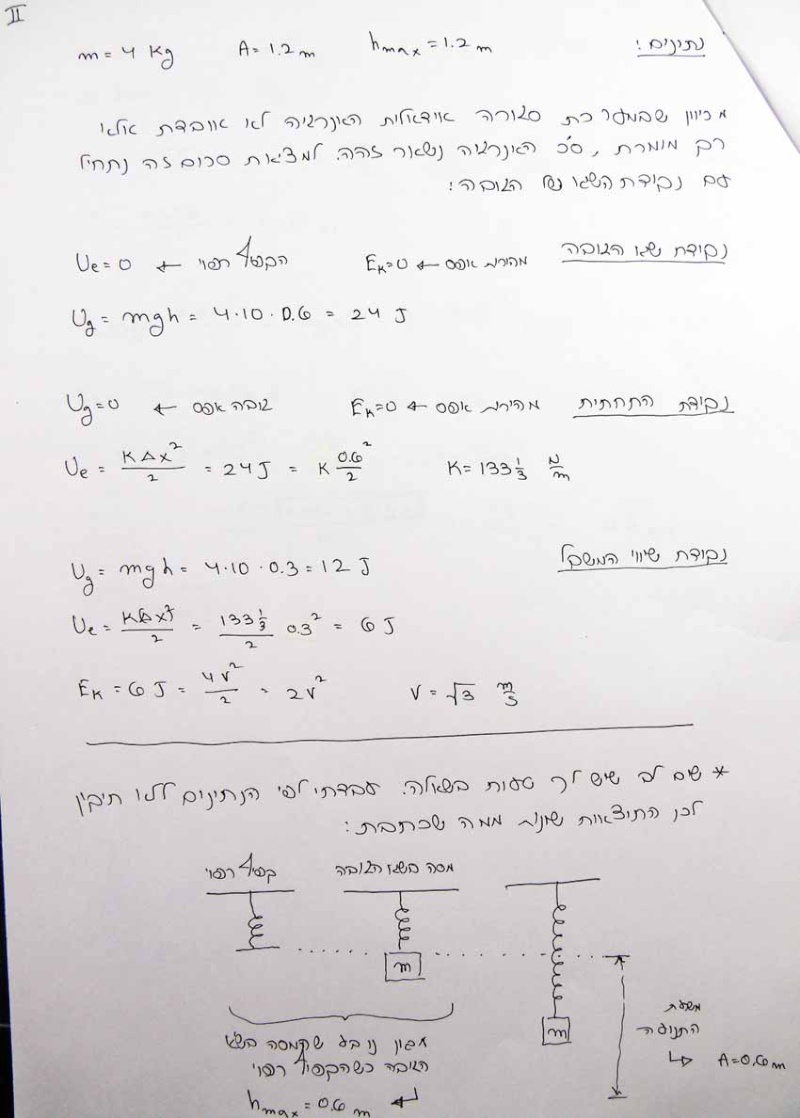 II
נתינים: hmax = 1.2 m A = 1.2 m m = 4 Kg
מכיוון שבמערכת סגורה אידאלית האנרגיה לא אובדת אלא
רק מומרת, סה״כ האנרגיה נשאר זהה. למציאת סכום זה נתחיל
עם נקודת השיא של הגובה:
נקודת שיא הגובה מהירות אפס ← EK=0 הקפיץ רפוי ← Ue=0
Ug = mgh = 4·10·0.6 = 24 J
נקודת התחתית מהירות אפס ← EK=0 גובה אפס ← Ug=0
Ue = KΔx²/2 = 24J = K 0.6²/2 K = 133 1/3 N/m
נקודת שיווי המשקל
Ug = mgh = 4·10·0.3 = 12 J
Ue = KΔx²/2 = 133 1/3 /2 0.3² = 6 J
EK = 6 J = 4V²/2 = 2V² V = √3 m/s
* שים לב שיש לך טעות בשאלה. עבדתי לפי הנתונים
לכן התוצאות שונות ממה שכתבת:
קפיץ רפוי מסה בשיא הגובה
m
m
משרעת
התנועה
A=0.6m
הגובה כשהקפיץ רפוי
hmax = 0.6 m